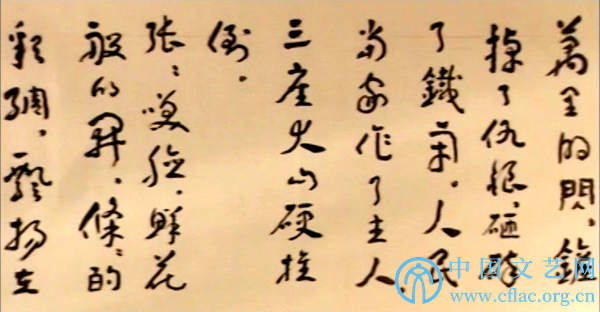 萬里的閃，鏟
掉了仇恨，砸碎
了鐵索。人民
當家作了主人，
三座大山硬推
倒。
張〻笑臉，鮮花
般的開，條〻的
彩綢，飄揚在
中国文艺网
www.cflac.org.cn